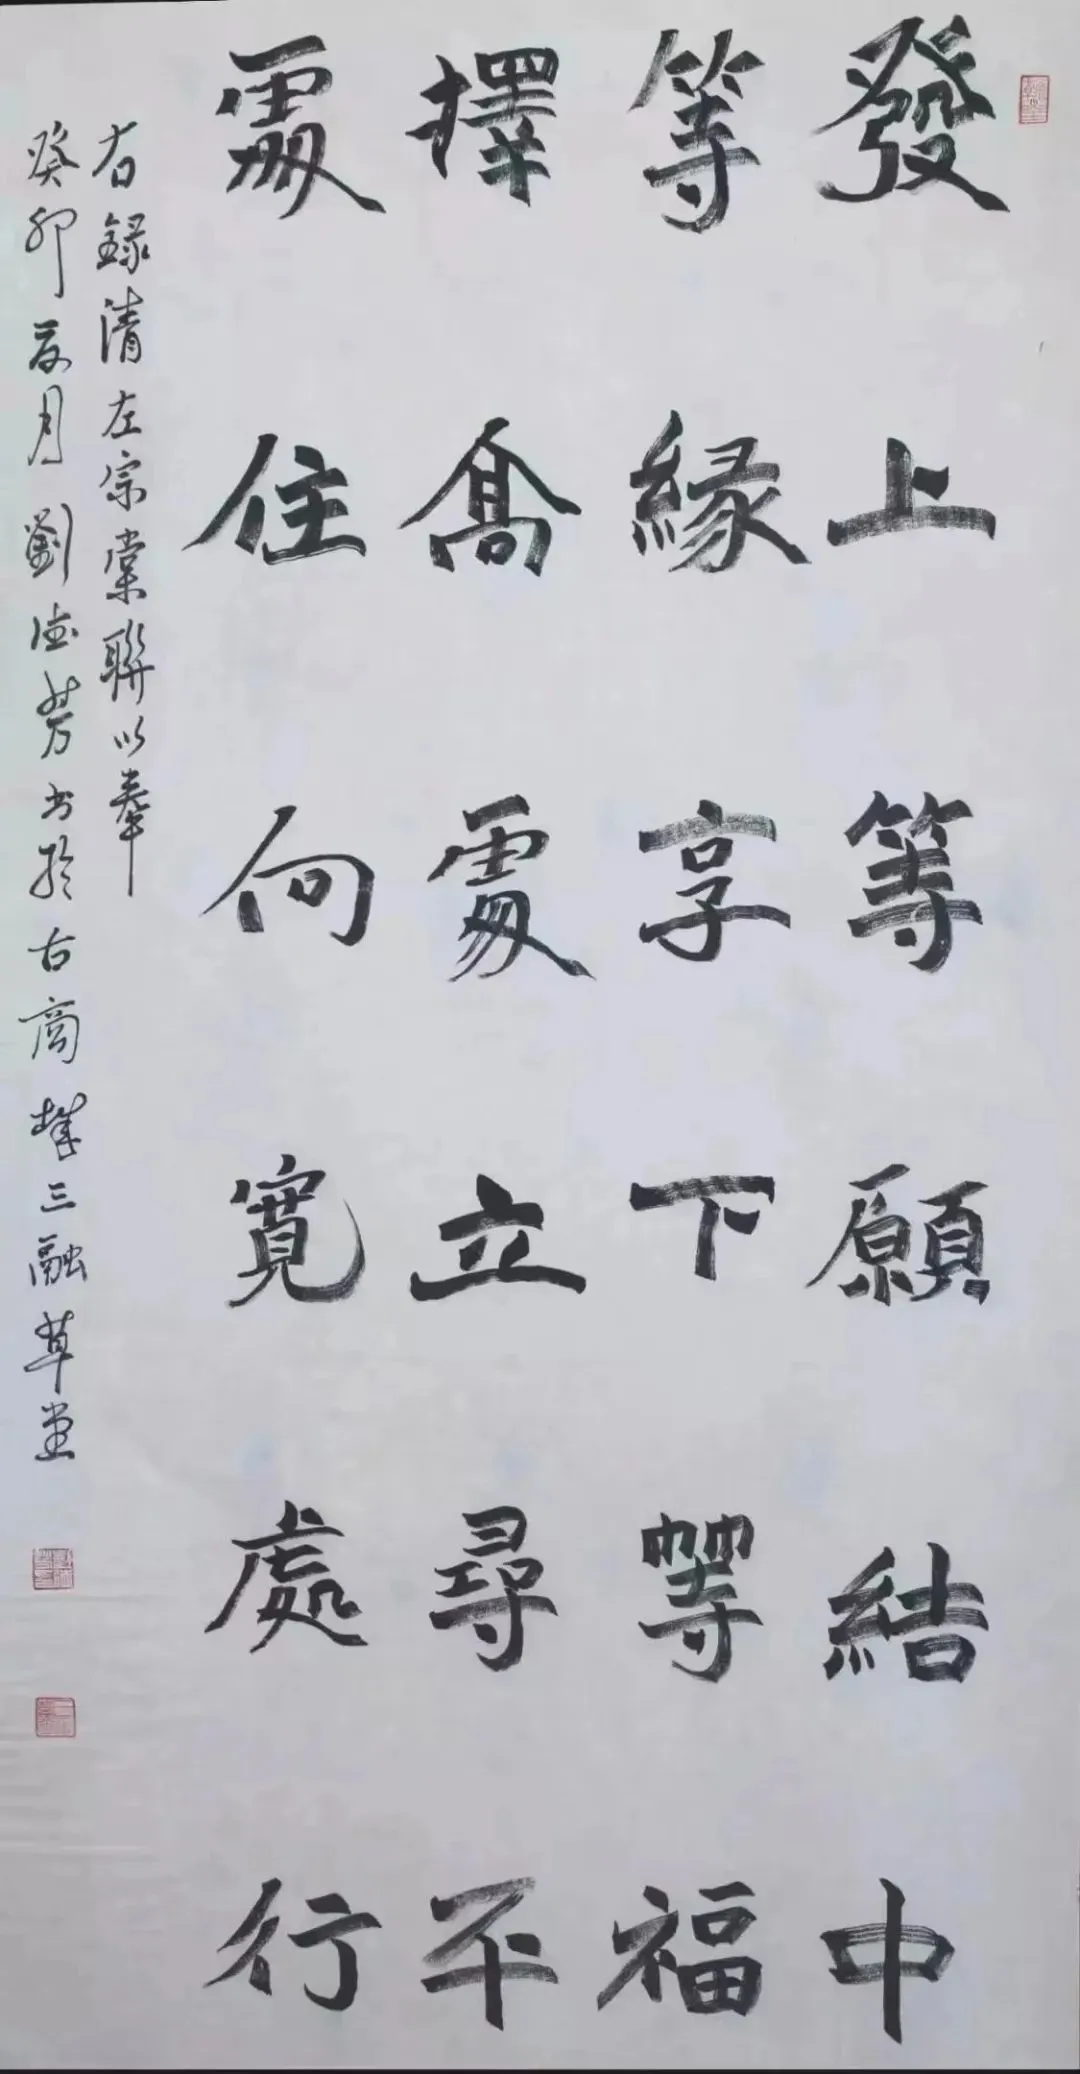 發上等願結中
等緣享下等福
擇高處立尋平
處住向寬處行
右錄清左宗棠聯以奉
癸卯夏月劉德芳书於古商三融草堂